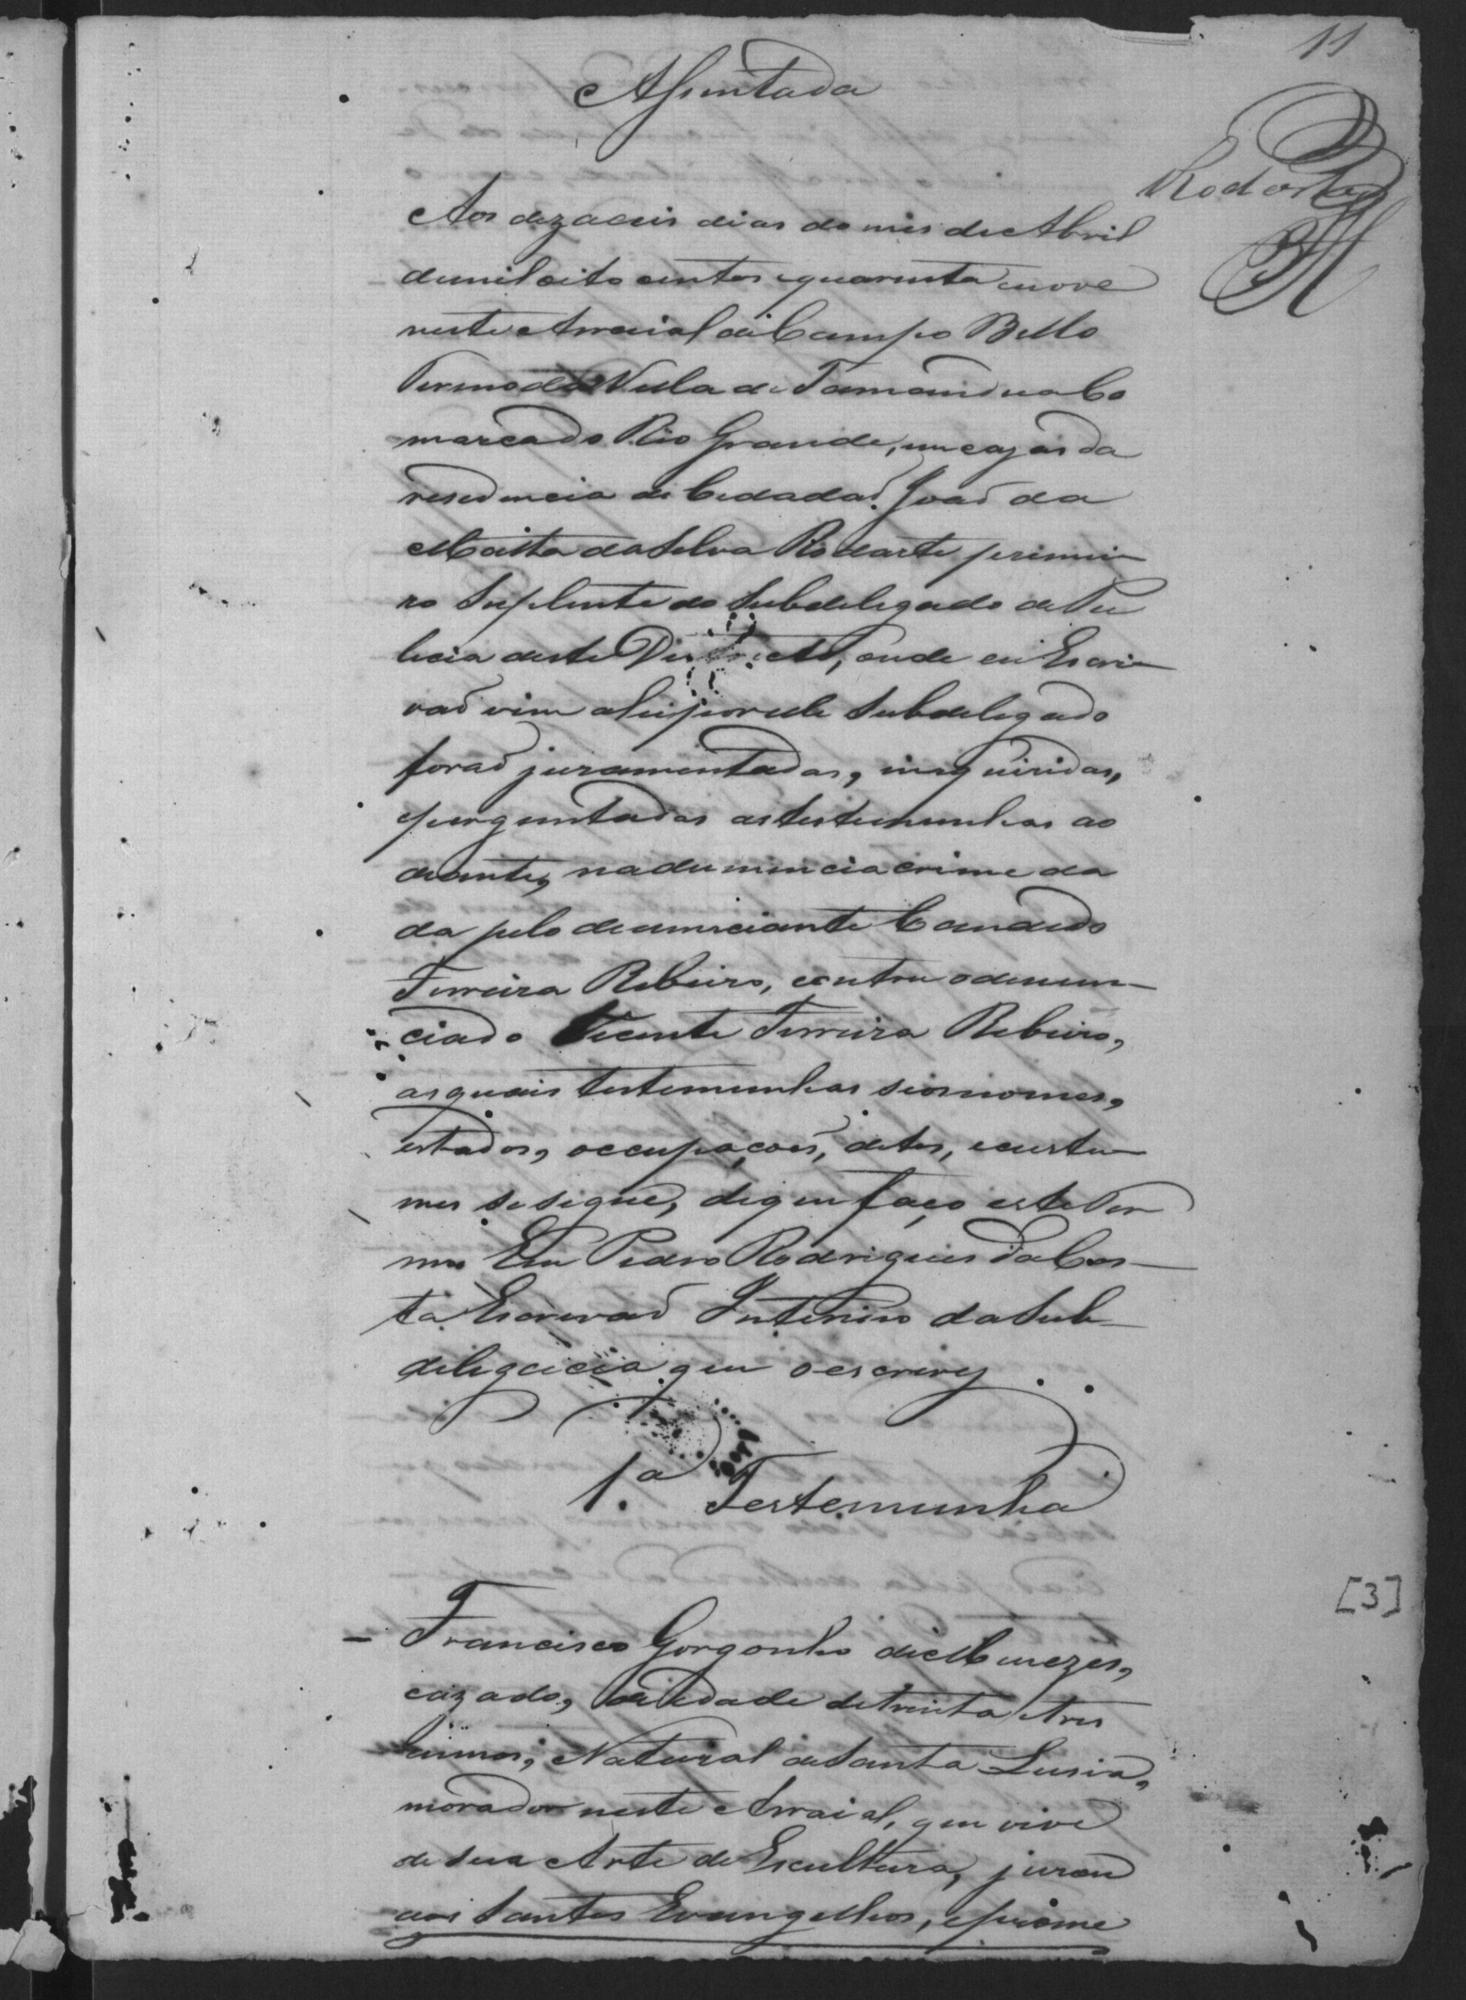 11
Assentada
Rodarte
Aos dezaceis dias do mes de Abril
de mil oito centos e quarenta e nove
neste Arraial de Campo Bello
Termo da Villa de Tamanduá Co
marca do Rio Grande, em cazas da
residencia do Cidadaõ Joaõ da
Motta da Silva Rodarte primei
ro Suplente do Subdelegado de Pu
licia deste Districto, onde eu Escri
vaõ vim ahi por elle Subdelegado
foraõ juramentadas, inqueridas,
e perguntadas as testemunhas ao
deante, na denuncia crime da
da pelo denunciante Candido
Ferreira Ribeiro, contra o denun
ciado Vicente Ferreira Ribeiro,
as quais testemunhas seos nomes,
estados, occupaçoēs, ditos, e custu
mes se segue, de que faço este Ter
mo Eu Pedro Rodrigues da Cos
ta Escrivaõ Interino da Sub
delegacia que o escrevy
1.ª Testemunha
[3]
Francisco Gorgonho de Menezes,
cazado, de idade de trinta e tres
annos, Natural de Santa Lusia,
morador neste Arraial, que vive
de sua Arte de Escultura, jurou
aos Santos Evangelhos, e prome